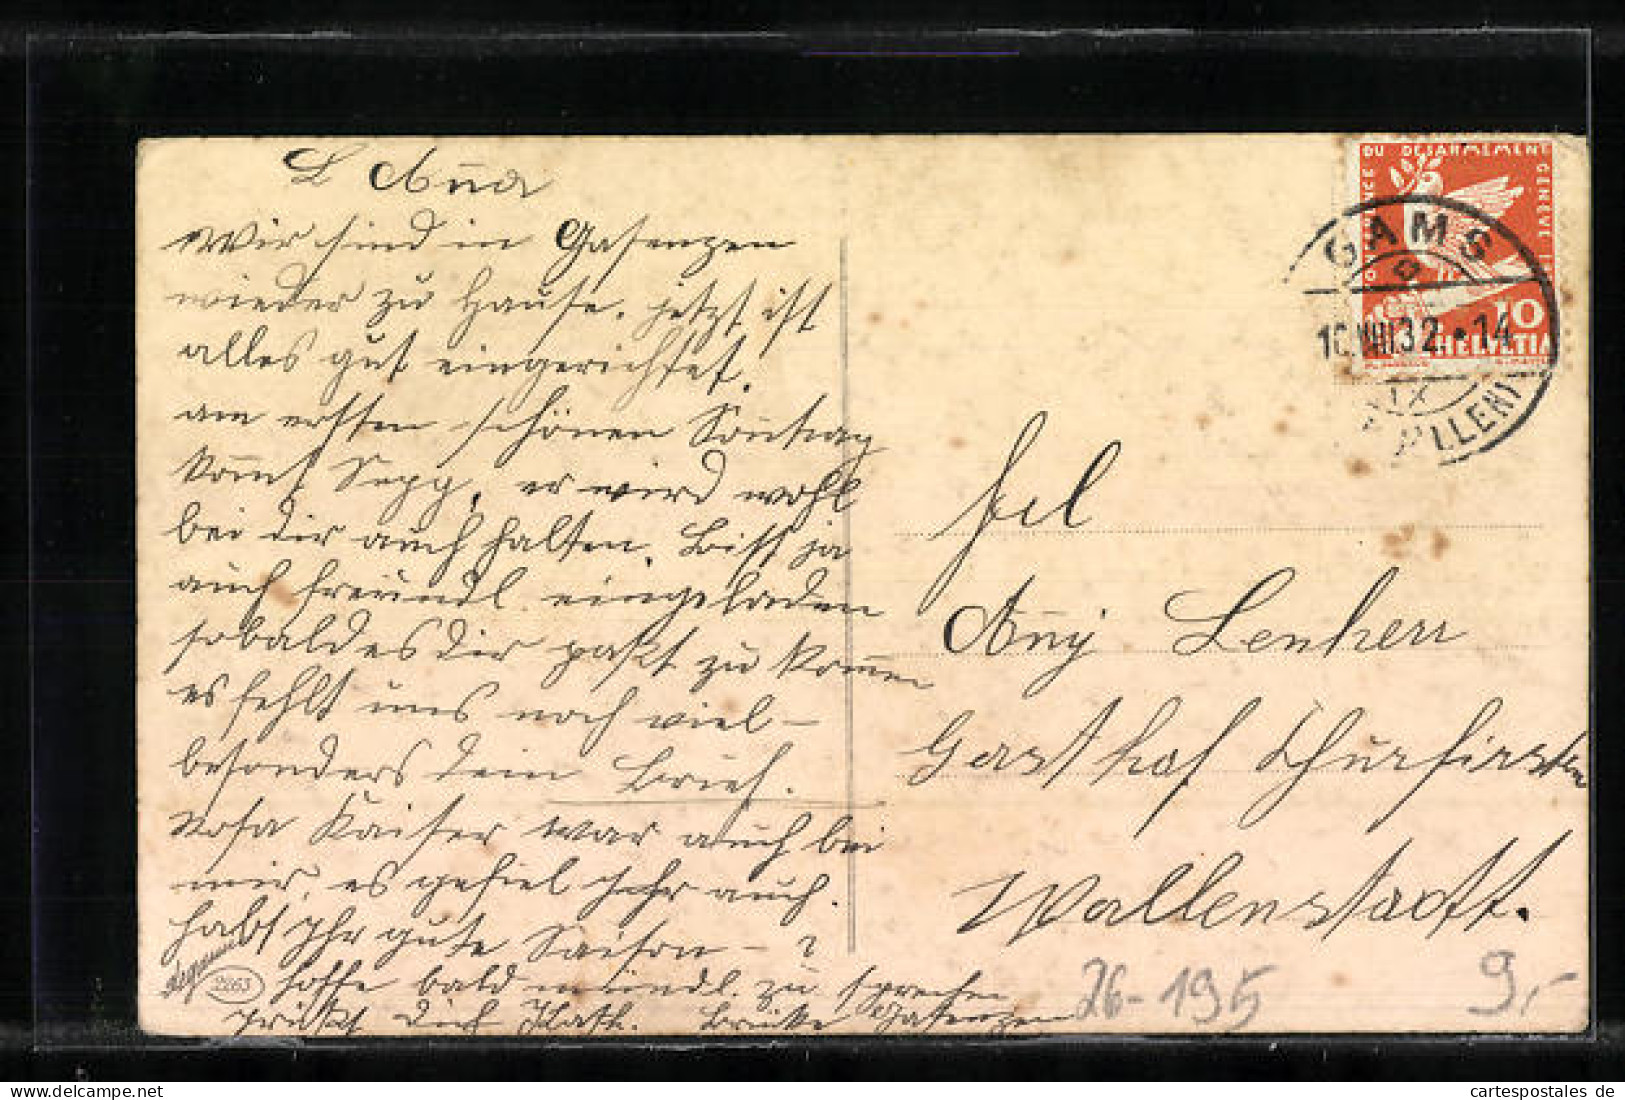 L Aña
Wir sind in Gasenzen
wieder zu Hause. jetzt ist
alles gut eingerichtet.
am ersten schönen Soñtag
kom̄t Sepp, er wird wohl
bei dir auch halten. Bist ja
auch freundl. eingeladen
sobald es dir paßt zu kom̄en
es fehlt uns noch viel –
besonders dein Brief.
Rosa Kaiser war auch bei
mir, es gefiel ihr auch.
habt Ihr gute Saison – ?
hoffe bald mündl. zu sprechen
grüßt Dich Gasenzen
2263
DU DESARMEMENT
GENEVE
10
HELVETIA
GAMS
10.VIII.32.•14
Frl
Añy Lenherr
Gasthof Churfirsten
Wallenstadt.
26-195
9,-
cartespostales.de